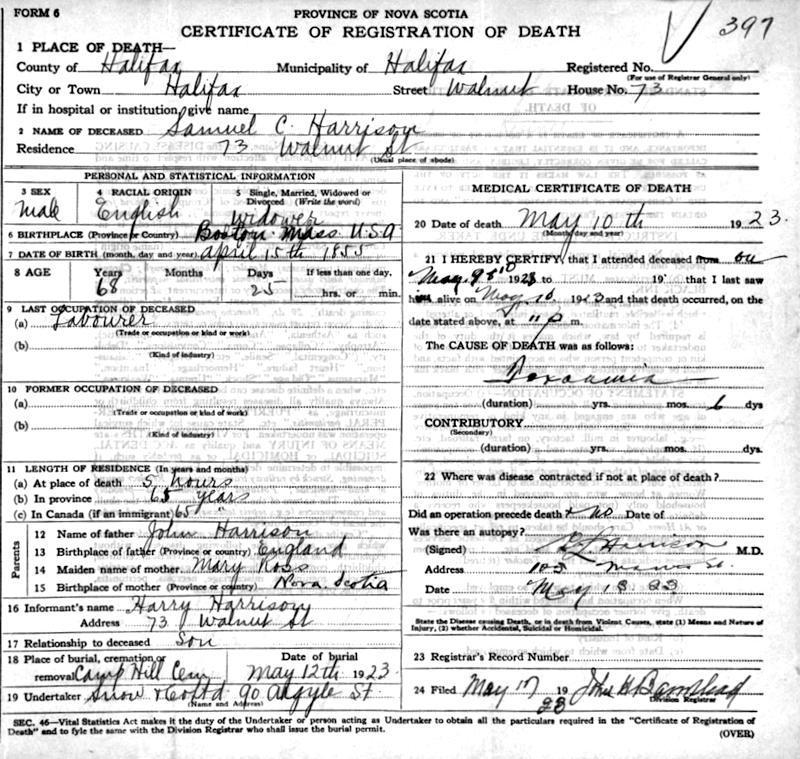 FORM 6
PROVINCE OF NOVA SCOTIA
397
CERTIFICATE OF REGISTRATION OF DEATH
1 PLACE OF DEATH—
County of Halifax Municipality of Halifax Registered No.
(For use of Registrar General only)
City or Town Halifax Street Walnut House No. 73
If in hospital or institution, give name
2 NAME OF DECEASED Samuel C. Harrison
Residence 73 Walnut St
(Usual place of abode)
PERSONAL AND STATISTICAL INFORMATION
3 SEX Male
4 RACIAL ORIGIN English
5 Single, Married, Widowed or Divorced (Write the word) Widower
6 BIRTHPLACE (Province or Country) Boston Mass USA
7 DATE OF BIRTH (month, day and year) April 15th 1855
8 AGE Years Months Days If less than one day,
68 25 hrs. or min.
9 LAST OCCUPATION OF DECEASED
(a) Labourer
(Trade or occupation or kind or work)
(b)
(Kind of industry)
10 FORMER OCCUPATION OF DECEASED
(a)
(Trade or occupation or kind of work)
(b)
(Kind of industry)
11 LENGTH OF RESIDENCE (In years and months)
(a) At place of death 5 hours
(b) In province 65 years
(c) In Canada (if an immigrant) 65 "
Parents
12 Name of father John Harrison
13 Birthplace of father (Province or country) England
14 Maiden name of mother Mary Ross
15 Birthplace of mother (Province or country) Nova Scotia
16 Informant's name Harry Harrison
Address 73 Walnut St
17 Relationship to deceased Son
18 Place of burial, cremation or removal Camp Hill Cem Date of burial May 12th 1923
19 Undertaker Snow & Co Ltd 90 Argyle St.
(Name and Address)
MEDICAL CERTIFICATE OF DEATH
20 Date of death May 10th 1923.
(Month, day and year)
21 I HEREBY CERTIFY, that I attended deceased from on
May 1923 to 19 that I last saw
h alive on May 10 1923 and that death occurred, on the
date stated above, at 11 p m.
The CAUSE OF DEATH was as follows:
(duration) yrs. mos. 6 dys
CONTRIBUTORY
(Secondary)
(duration) yrs. mos. dys.
22 Where was disease contracted if not at place of death?
Did an operation precede death? No Date of
Was there an autopsy?
(Signed) M.D.
Address
Date May 23
State the Disease causing Death, or in death from Violent Causes, state (1) Means and Nature of
Injury, (2) whether Accidental, Suicidal or Homicidal.
23 Registrar's Record Number
24 Filed May 17 1923 John H Barnstead
Division Registrar
SEC. 46—Vital Statistics Act makes it the duty of the Undertaker or person acting as Undertaker to obtain all the particulars required in the "Certificate of Registration of
Death" and to fyle the same with the Division Registrar who shall issue the burial permit.
(OVER)